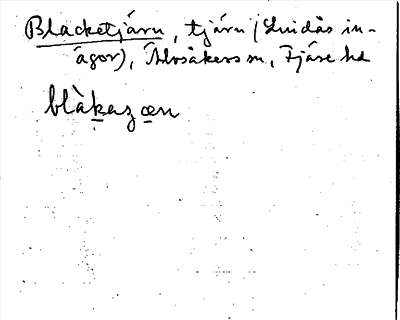 Blacketjärn, tjärn (Lindås in-
ägor), Älvsåkers sn, Fjäre hd
blàkaz œn